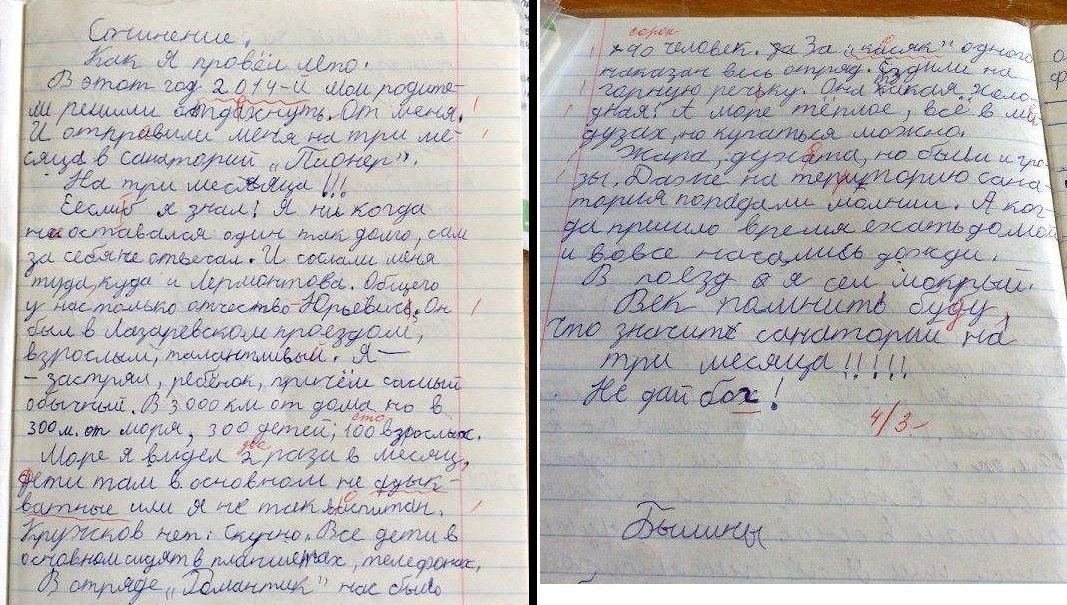 Сочинение.
Как я провёл лето.
В этот год 2014-й мои родите-
ли решили отдахнуть. От меня.
И отправили меня на три ме-
сяца в санаторий „Пионер".
На три месяца!!!
Ееслиб я знал! Я ни когда
не оставался один так долго, сам
за себя не отвечал. И сослали меня
туда, куда и Лермонтова. Общего
у нас только отчество-Юрьевич. Он
был в Лазаревском проездом,
взрослый, талантливый. Я—
- застрял, ребёнок, причём самый
обычный. В 3000 км от дома но в
сто
300 м. от моря, 300 детей, 100 взрослых.
два
Море я видел 2 раза в месяц,
дети там в основном не адык-
ватные или я не так воспитан.
Кружков нет. Скучно. Все дети в
основном сидят в планшетах, телефонах.
В отряде „Романтик" нас было
сорок
40 человек. За „касяк" одного
наказан весь отряд. Ездили на
горную речьку. Она такая холо-
дная! А море тёплое, всё в ме-
дузах, но купаться можно.
Жара, духата, но были и гро-
зы. Даже на територию сана-
тория попадали молнии. А ког-
да пришло время ехать домой
и вовсе начались дожди.
В поезд я сел мокрый.
Век помнить буду,
что значить санаторий на
три месяца!!!!!
Не дай бох!
4/3-
Былины